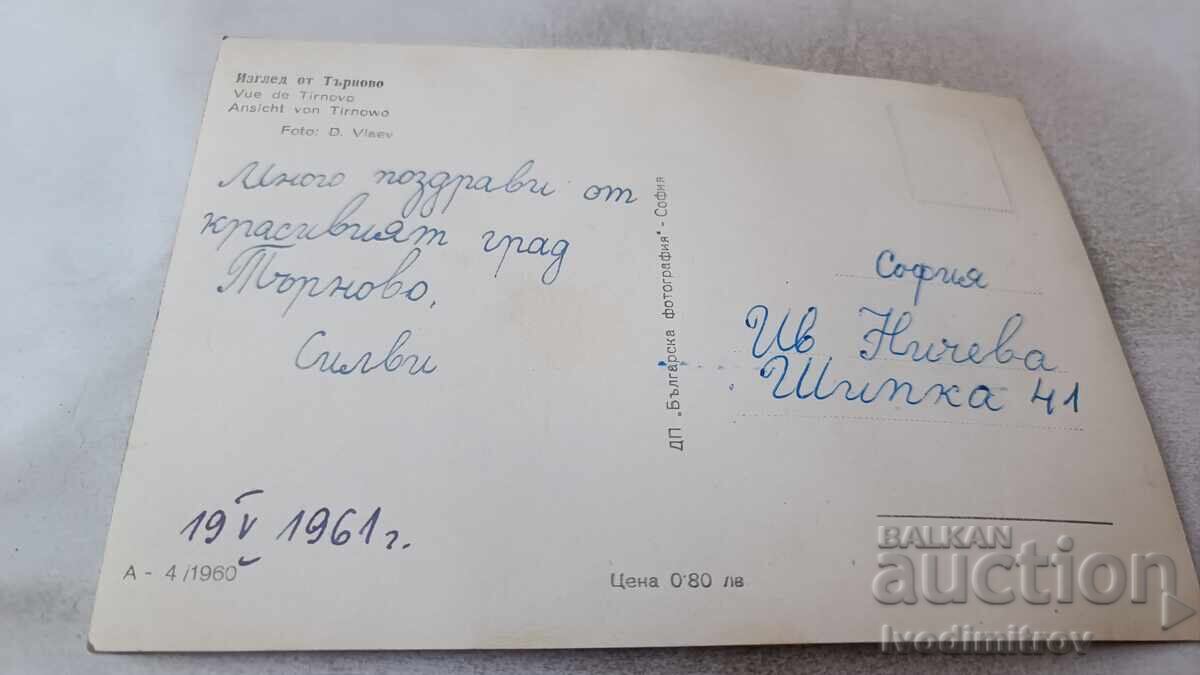 Изглед от Търново
Vue de Tirnovo
Ansicht von Tirnowo
Foto: D. Vlaev
Много поздрави от
красивият град
Търново.
Силви
19 V 1961 г.
А - 4 /1960
ДП „Българска фотография“ - София
Цена 0·80 лв
София
Ив Ничева
Шипка 41
BALKAN
auction
Ivodimitrov